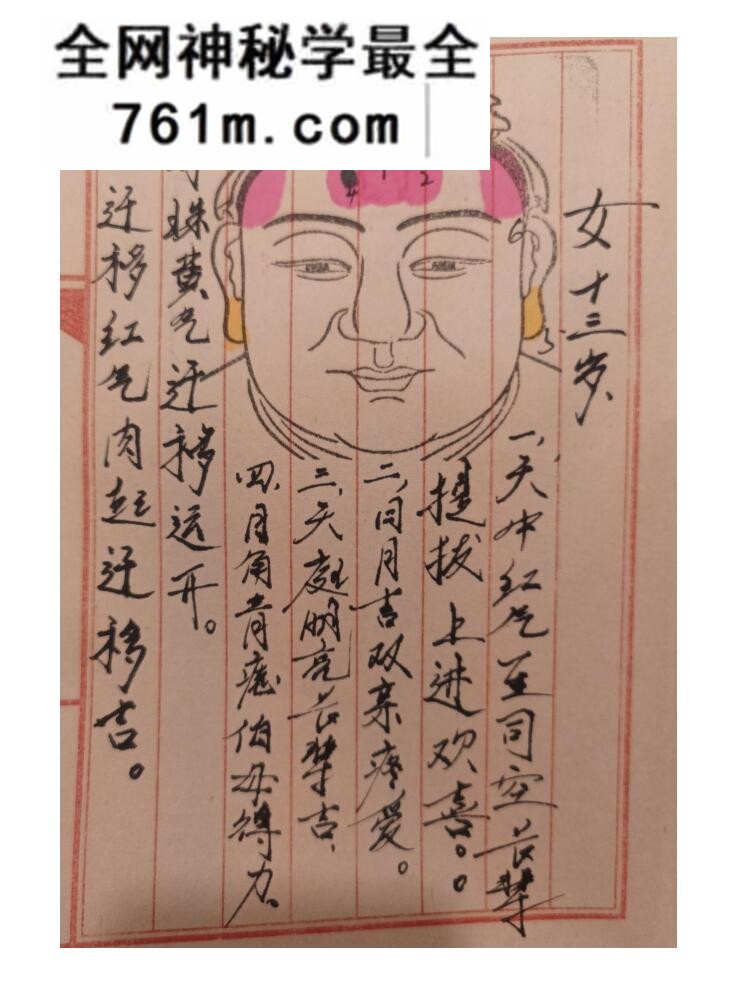 全网神秘学最全
761m.com
女十三岁
一、天中红气至司空长辈
提拔上进欢喜。
二、日月吉双亲疼爱。
三、天庭明亮长辈吉、
四、月角青痣伯母得力、
珠黄气迁移运开。
迁移红气肉起迁移吉。
4
2